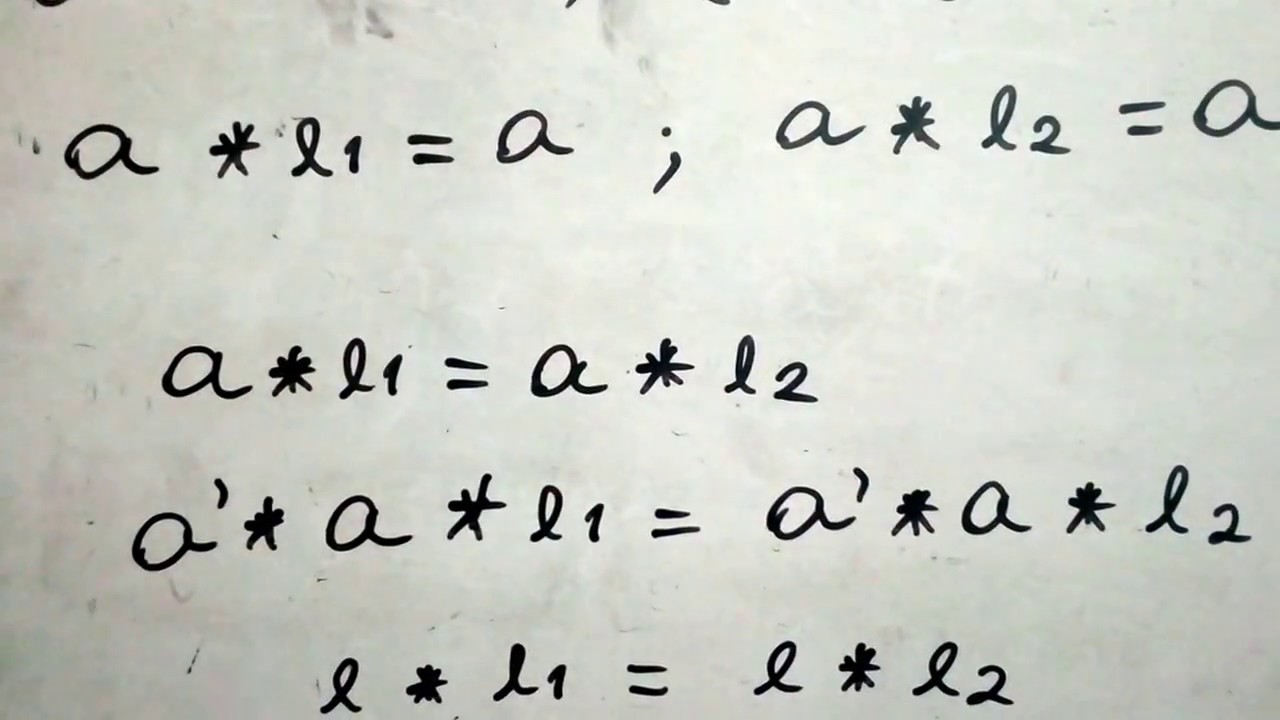 a * l1 = a ; a * l2 = a
a * l1 = a * l2
a' * a * l1 = a' * a * l2
l * l1 = l * l2